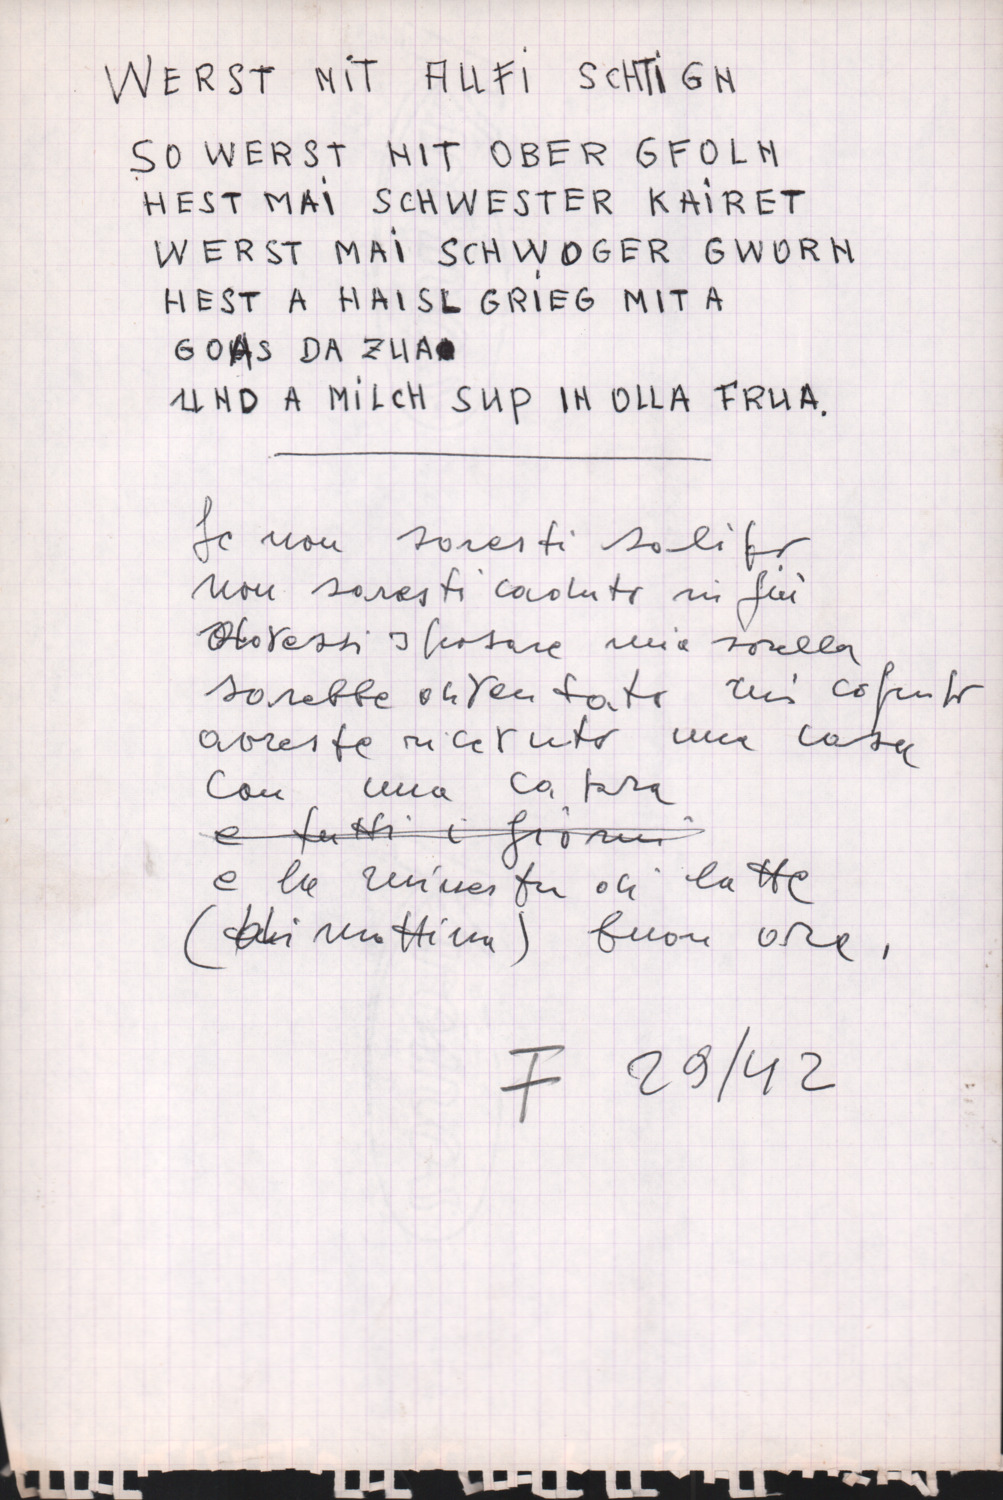 WERST NIT AUFI SCHTIGN
SO WERST NIT OBER GFOLN
HEST MAI SCHWESTER KAIRET
WERST MAI SCHWOGER GWORN
HEST A HAISL GRIEG MIT A
GOAS DA ZUA
UND A MILCH SUP IN OLLA FRUA.
Se non saresti salito
non saresti caduto in giù
dovessi sposare mia sorella
sarebbe diventato mio cognato
avreste ricevuto una casa
con una capra
e tutti i giorni
e la minestra di latte
(di mattina) buon ora.
F 29/42